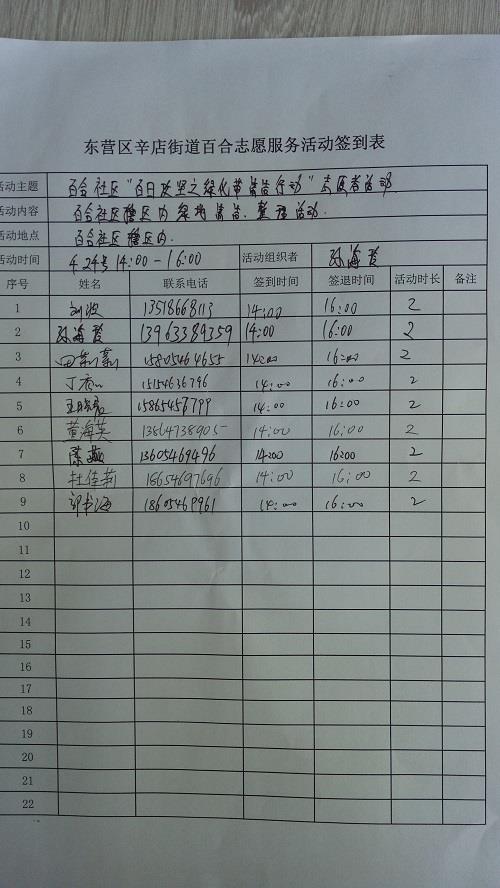 东营区辛店街道百合志愿服务活动签到表
活动主题 百合社区"百日攻坚之绿化带清洁行动"志愿者活动
活动内容 百合社区辖区内绿地清洁、整理活动.
活动地点 百合社区辖区内.
活动时间 4.24号 14:00-16:00 活动组织者 海
序号 姓名 联系电话 签到时间 签退时间 活动时长 备注
1 刘波 13518668113 14:00 16:00 2
2 海 13963389359 14:00 16:00 2
3 田 15805464655 14:00 16:00 2
4 丁 15154636796 14:00 16:00 2
5 王 15865456799 14:00 16:00 2
6 董海英 13864738905 14:00 16:00 2
7 陈燕 13605469496 14:00 16:00 2
8 杜佳莉 18654697696 14:00 16:00 2
9 郭书海 18605469961 14:00 16:00 2
10
11
12
13
14
15
16
17
18
19
20
21
22